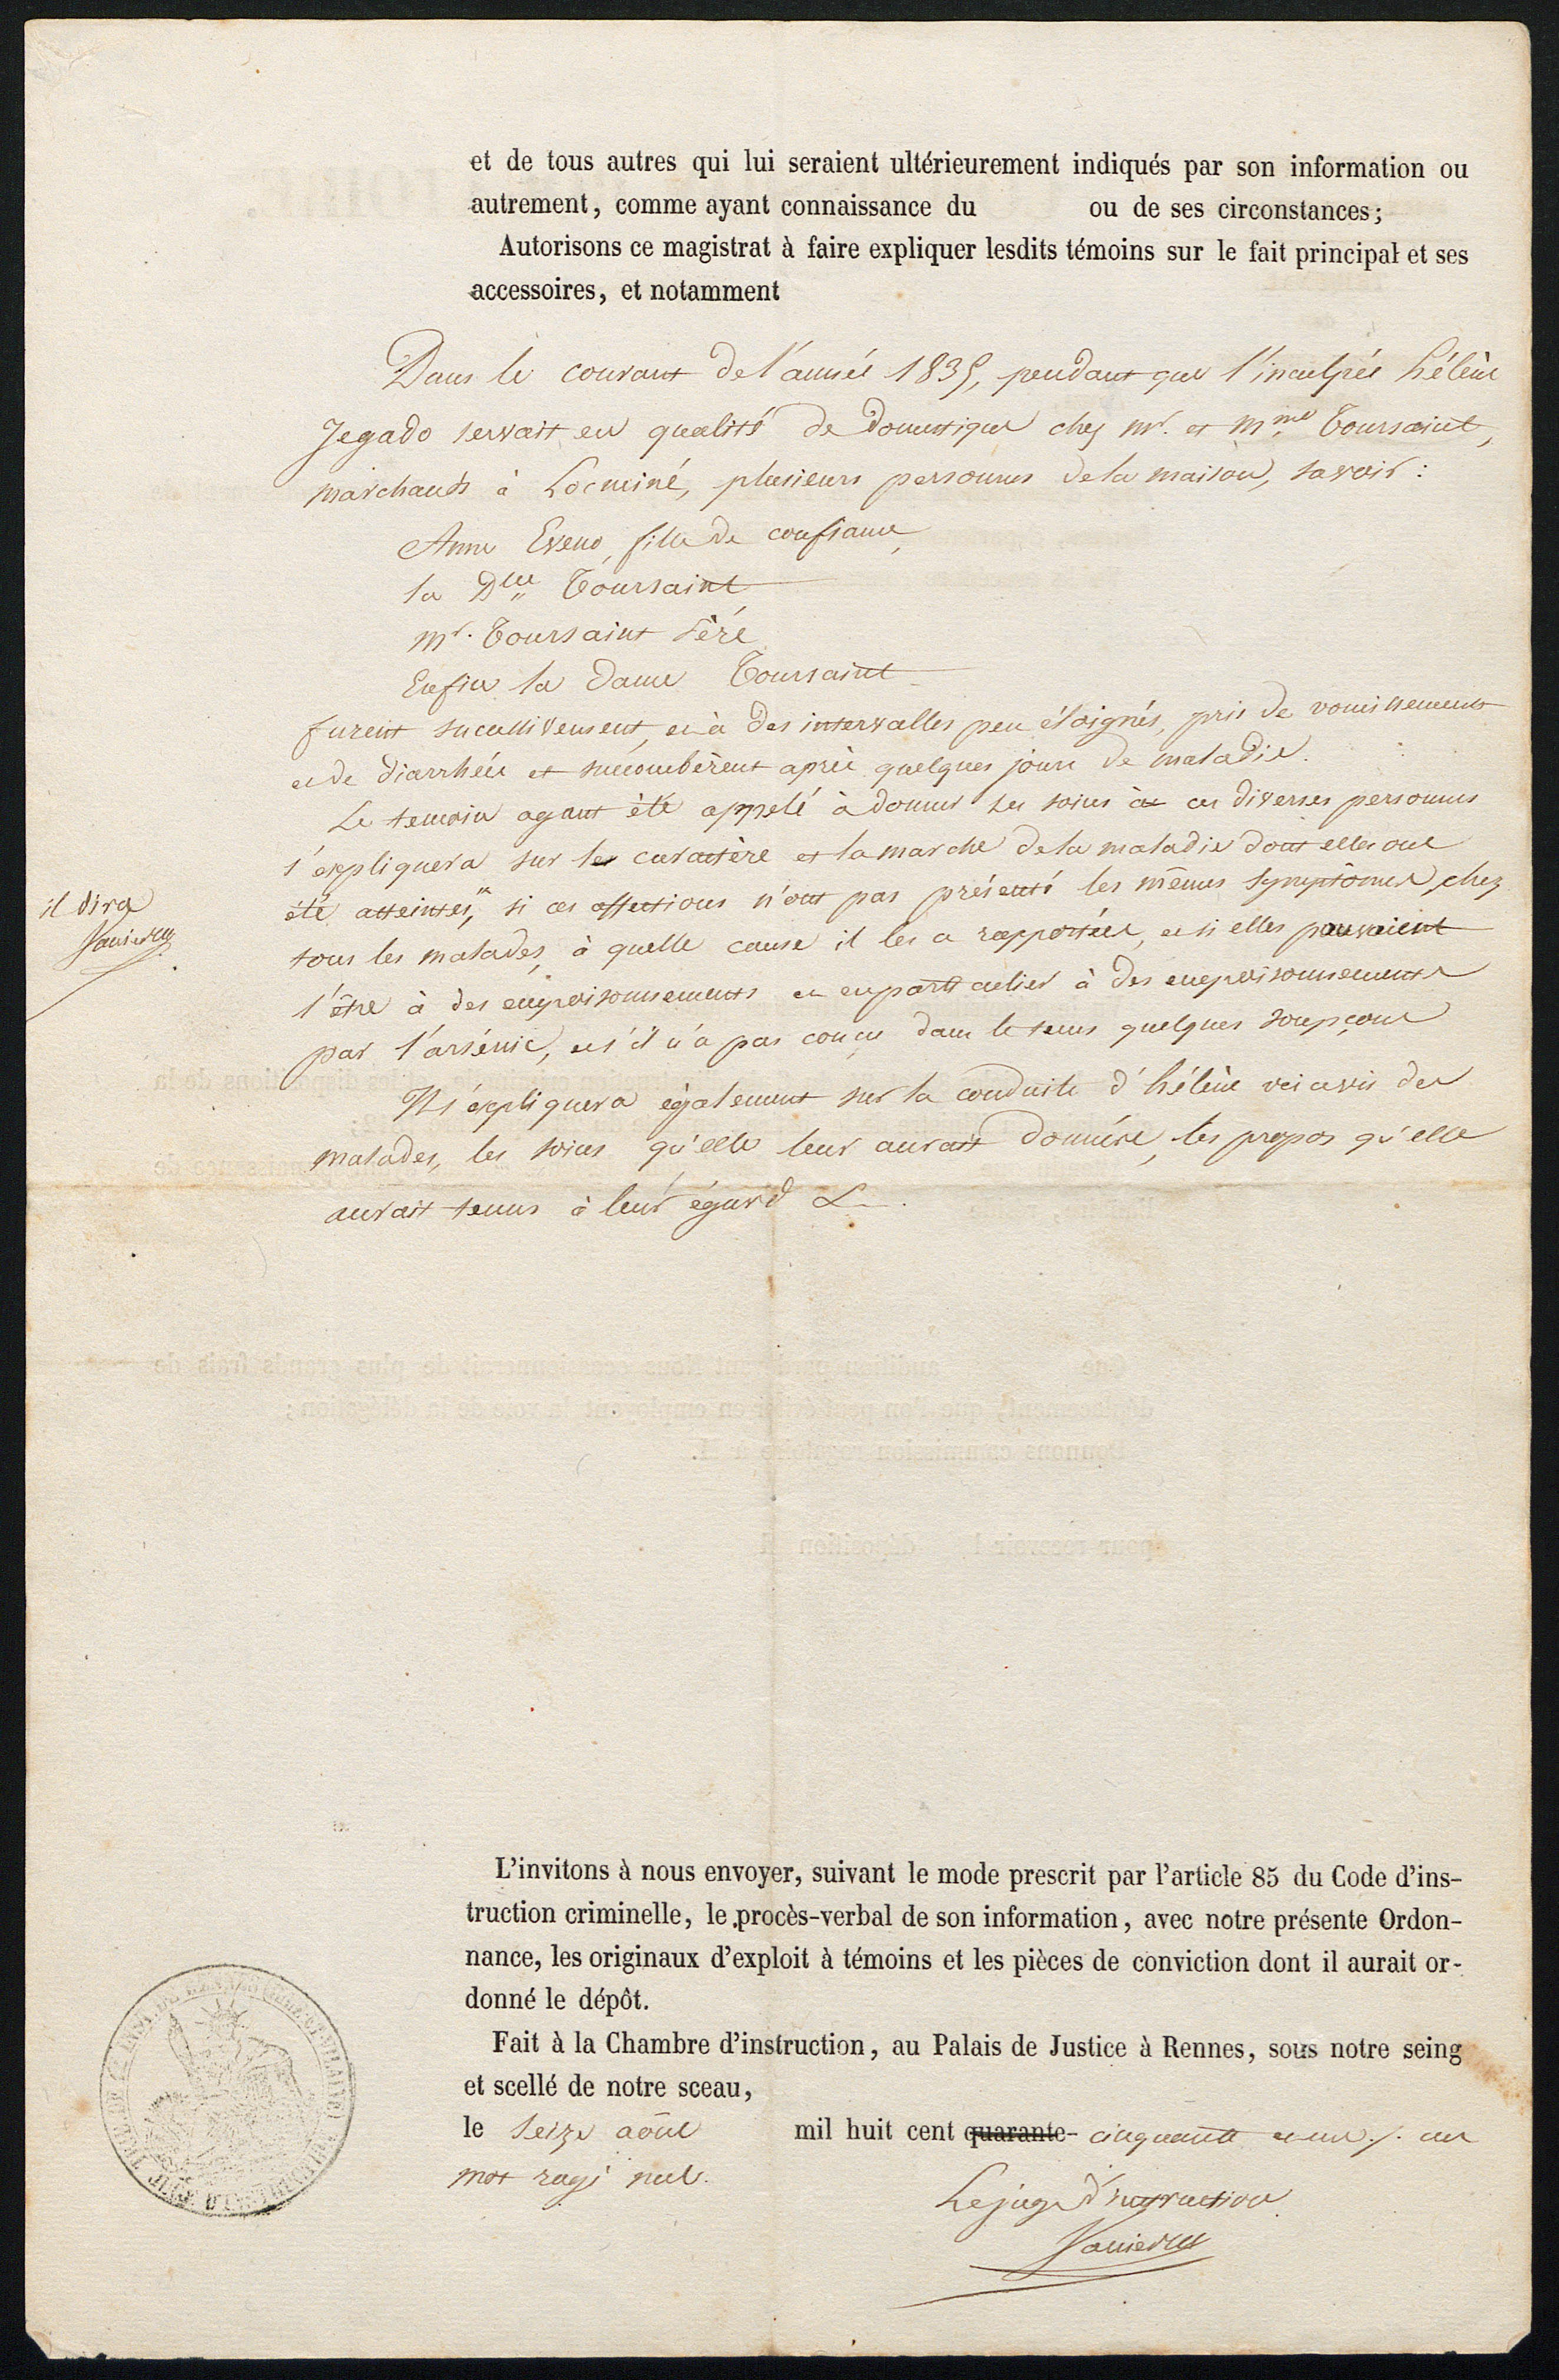 et de tous autres qui lui seraient ultérieurement indiqués par son information ou
autrement, comme ayant connaissance du ou de ses circonstances;
Autorisons ce magistrat à faire expliquer lesdits témoins sur le fait principal et ses
accessoires, et notamment
Dans le courant de l'année 1835, pendant que l'inculpée hélène
Jegado servait en qualité de domestique chez mr. et Mme Toursaint,
marchands à Locminé, plusieurs personnes de la maison, savoir :
Anne Eveno, fille de confiance,
la Dlle Toursaint
mr. Toursaint Père
Enfin la dame Toursaint
furent successivement, et à des intervalles peu éloignés, pris de vomissements
et de diarrhée et succombèrent après quelques jours de maladie.
Le temoin ayant été appelé à donner ses soins à ces diverses personnes
s'expliquera sur le caractère et la marche de la maladie dont elles ont
été atteintes, " si ces affections n'ont pas présenté les mêmes symptômes chez
il dira
tous les malades, à quelle cause il les a rapportées, et si elles pouvaient
l'être à des empoisonnements et en particulier à des empoisonnements
par l'arsénic, et s'il n'a pas conçu dans le tems quelques soupçons
Il s'expliquera également sur la conduite d'hélène vis avis des
malades, les soins qu'elle leur aurait donnés, les propos qu'elle
aurait tenus à leur égard &.
L'invitons à nous envoyer, suivant le mode prescrit par l'article 85 du Code d'ins-
truction criminelle, le procès-verbal de son information, avec notre présente Ordon-
nance, les originaux d'exploit à témoins et les pièces de conviction dont il aurait or-
donné le dépôt.
Fait à la Chambre d'instruction, au Palais de Justice à Rennes, sous notre seing
et scellé de notre sceau,
le seize août mil huit cent quarante- cinquante et un ./. un
mot rayé nul.
Le juge d'instruction